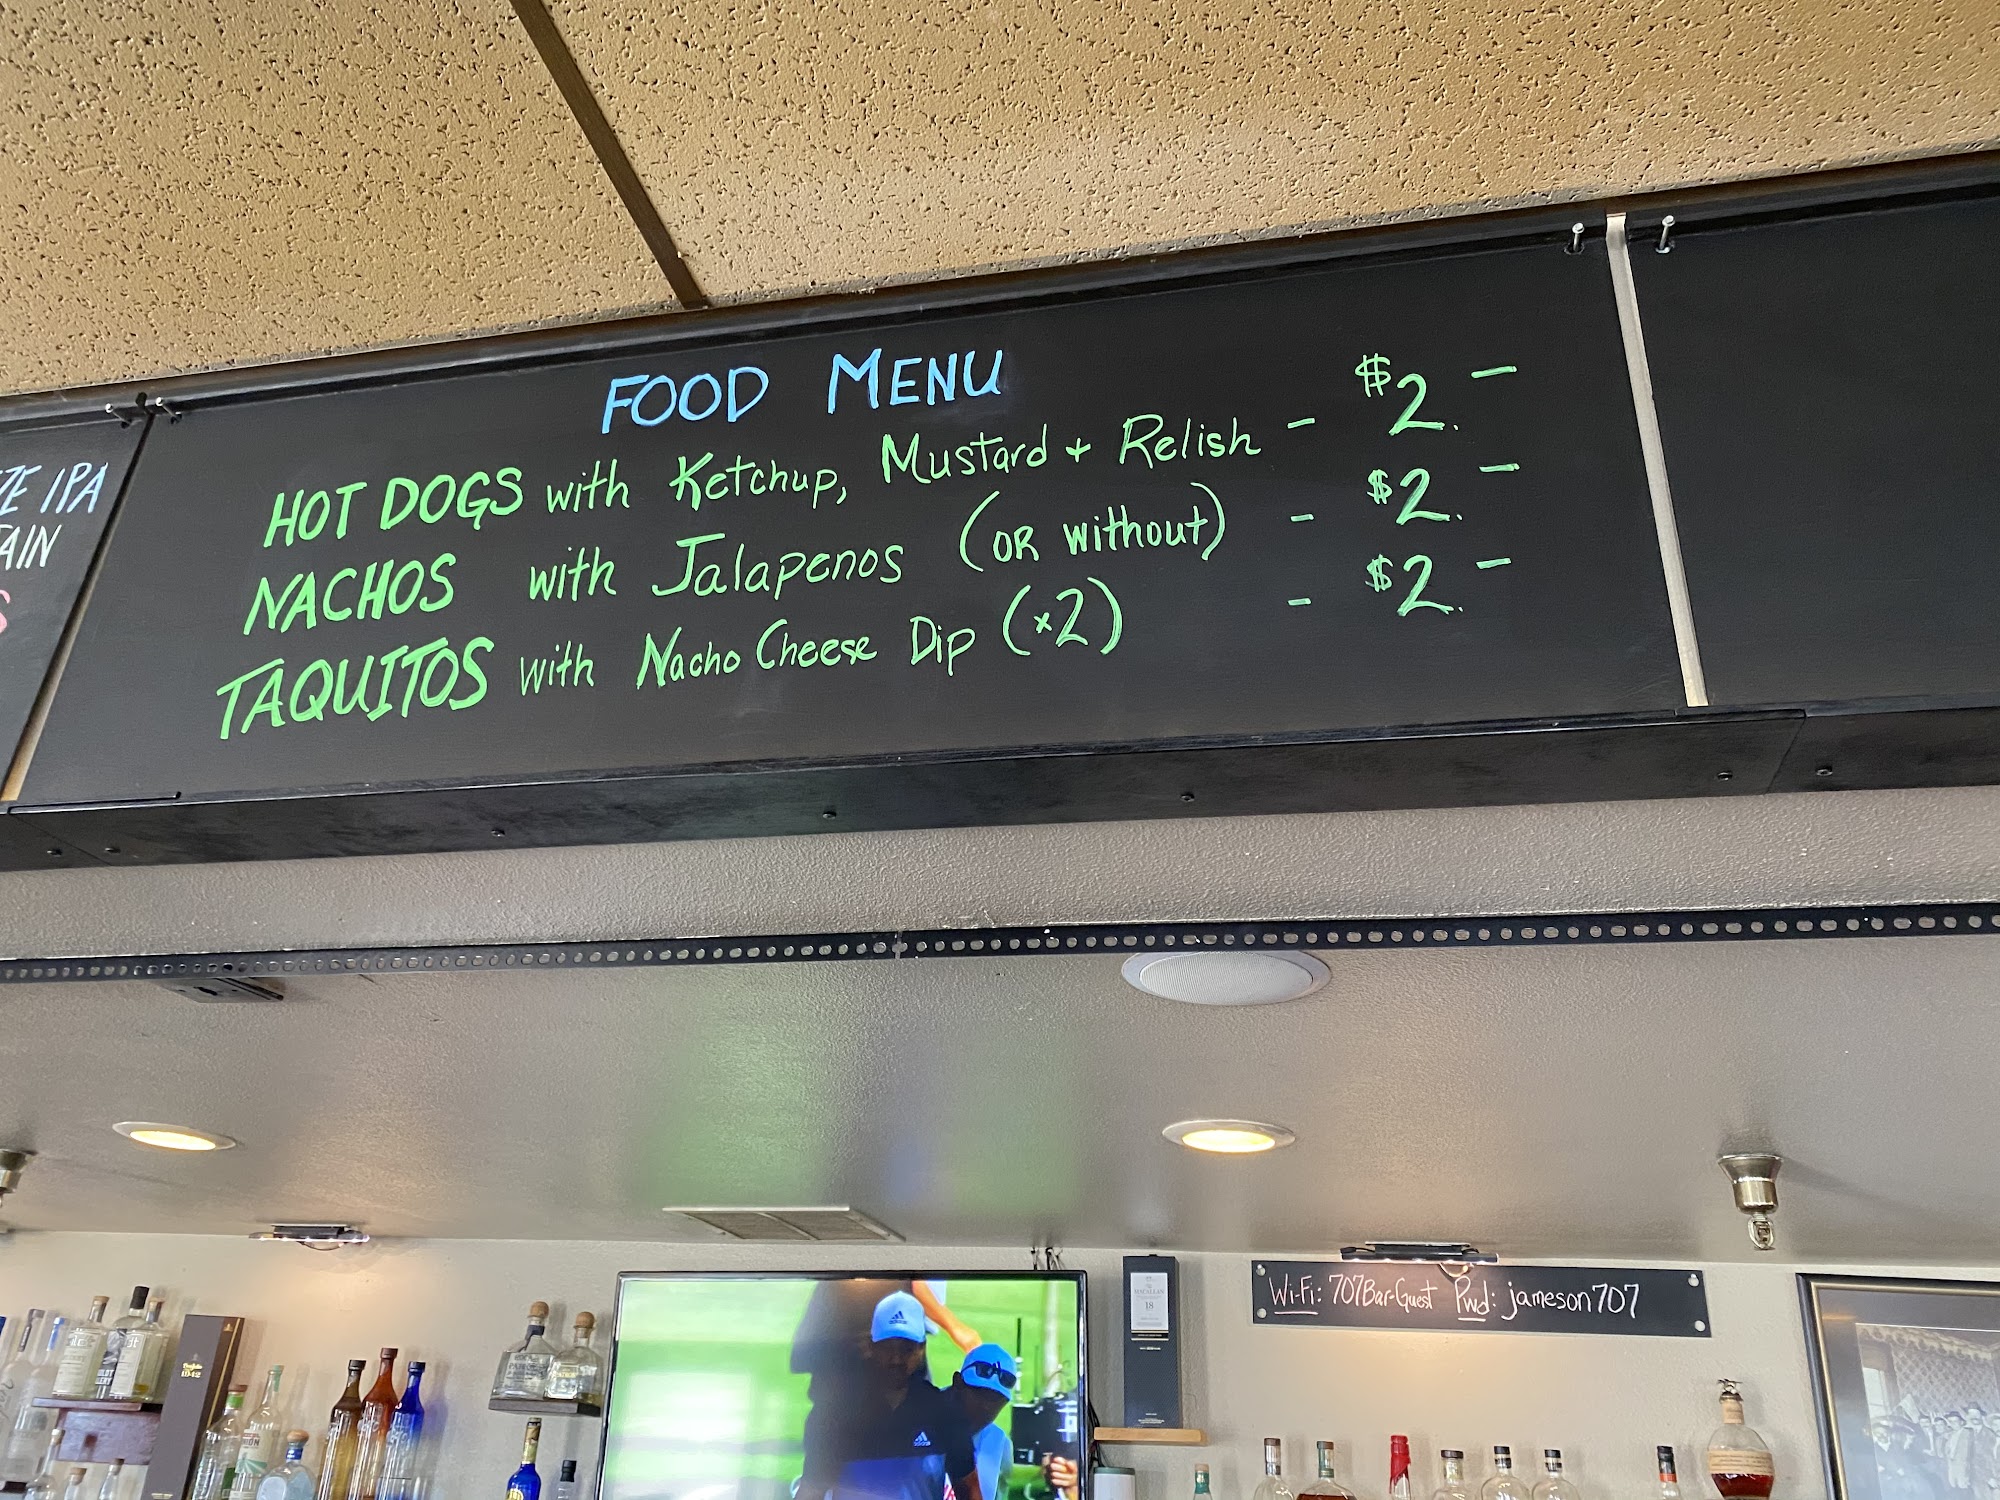 FOOD MENU
HOT DOGS with Ketchup, Mustard + Relish - $2.—
NACHOS with Jalapenos (OR without) - $2.—
TAQUITOS with Nacho Cheese Dip (x2) - $2.—
IPA
Wi-Fi: 707Bar-Guest Pwd: jameson707
MACALLAN
18
adidas
adidas
1942